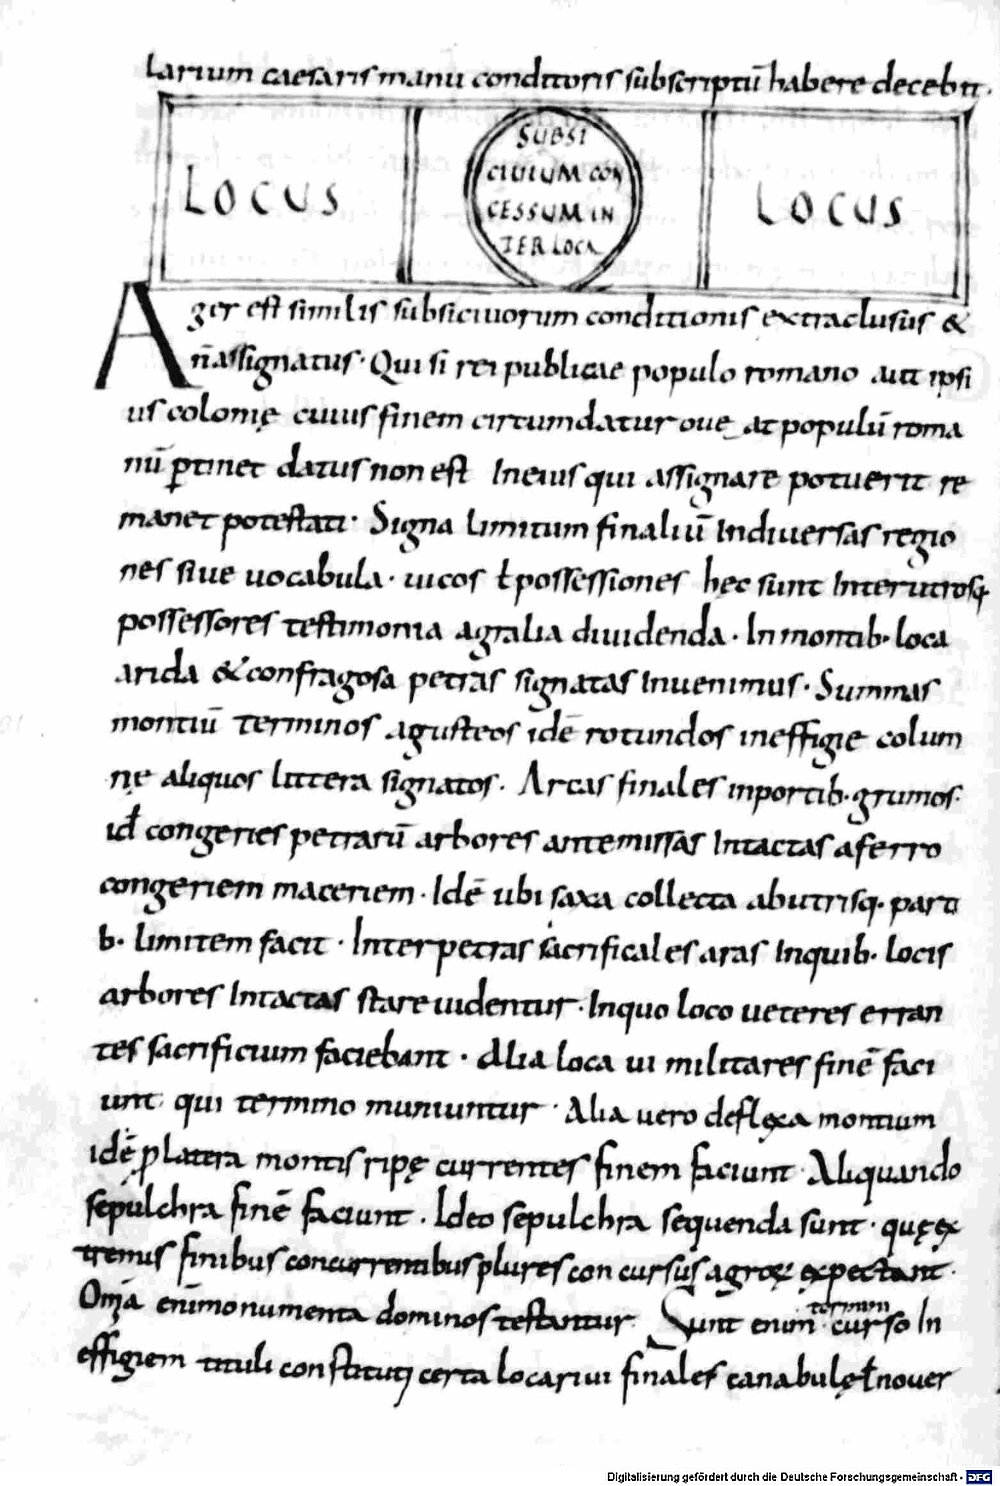 larium caesaris manu conditoris subscriptū habere decebit.
LOCUS
SUBSI
CIUIUM CON
CESSUM IN
TER LOCA
LOCUS
Ager est similis subsiciuorum conditionis extraclusus &
n̄ assignatus · Qui si rei publicae populo romano aut ipsi
us colonię cuius finem circumdatur oue at populū roma
nū ꝑtinet datus non est In eius qui assignare potuerit re
manet potestati · Signa limitum finaliū In diuersas regio
nes siue uocabula · uicos ł possessiones hęc sunt Inter utrosq·
possessores testimonia agralia diuidenda · In montib· loca
arida & confragosa petras signatas Inuenimus · Summas
montiū terminos agusteos idē rotundos in effigie colum
nę aliquos littera signatos · Arcas finales in portib· grumos·
id̄ congeries petrarū arbores antemissas Intactas a ferro
congeriem maceriem · Idē ubi saxa collecta ab utrisq· parti
b· limitem facit · Inter petras sacrificales aras In quib· locis
arbores Intactas stare uidentur · In quo loco ueteres erran
tes sacrificium faciebant · Alia loca ui militares finē faci
unt qui termino muniuntur · Alia uero deflęxa montium
idē ꝑ latera montis ripę currentes finem faciunt · Aliquando
sepulchra finē faciunt · Ideo sepulchra sequenda sunt · quę ęx
tremis finibus concurrentibus plures concursus agroę ęxpectant ·
Om̄ia enim monumenta dominos testantur Sunt enim · curso In
termin
effigiem tituli constituti certa locarum finales canabulę ł nouer
Digitalisierung gefördert durch die Deutsche Forschungsgemeinschaft - DFG